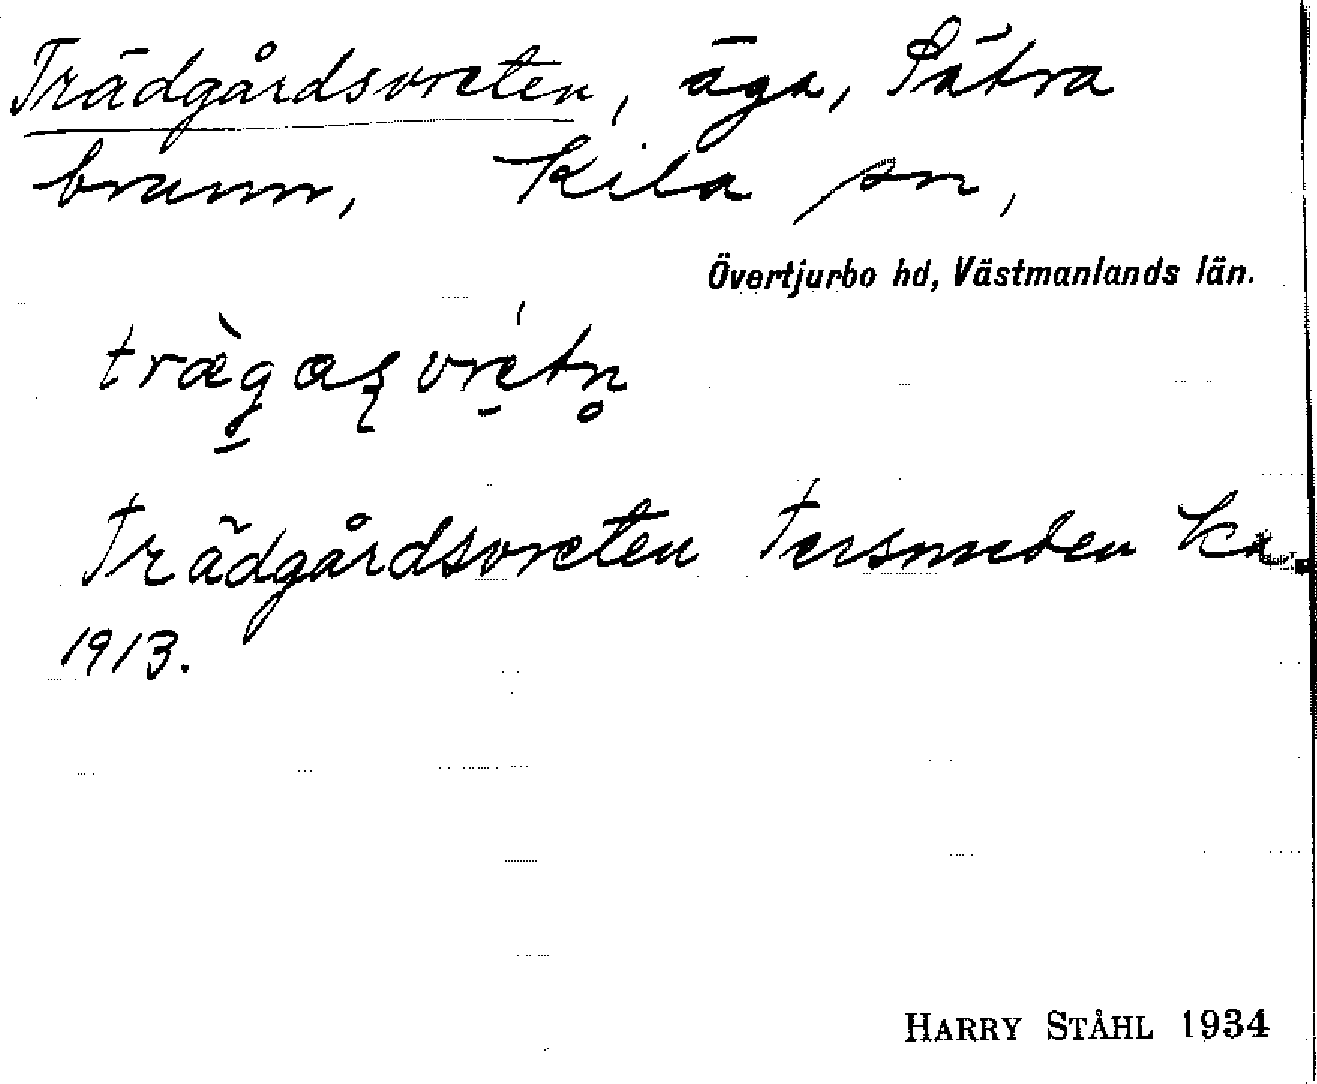 Trädgårdsvreten, äga, Sätra
brunn, Kila sn,
Övertjurbo hd, Västmanlands län.
Trädgårdsvreten Tersmeden Ka
1913.
HARRY STÅHL 1934